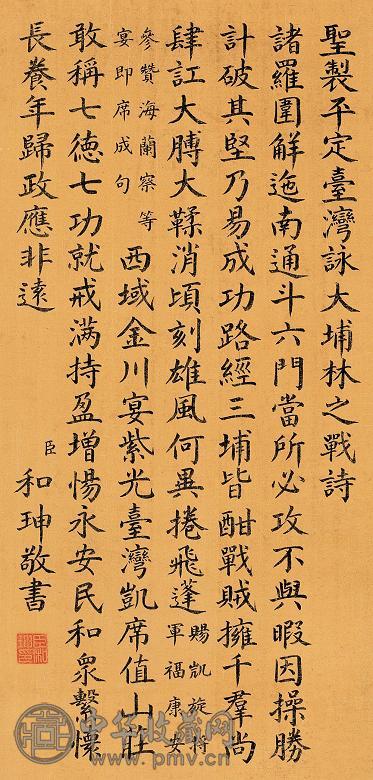 聖製平定臺灣詠大埔林之戰詩
諸羅圍解迤南通斗六門當所必攻不與暇因操勝
計破其堅乃易成功路經三埔皆酣戰賊擁千羣尚
肆訌大膊大鞣消頃刻雄風何異捲飛蓬
賜凱旋將
軍福康安
參贊海蘭察等
宴即席成句
西域金川宴紫光臺灣凱席值山莊
敢稱七德七功就戒滿持盈增惕永安民和衆繫懷
長養年歸政應非遠
臣和珅敬書
中华收藏网
www.pmvv.com.cn